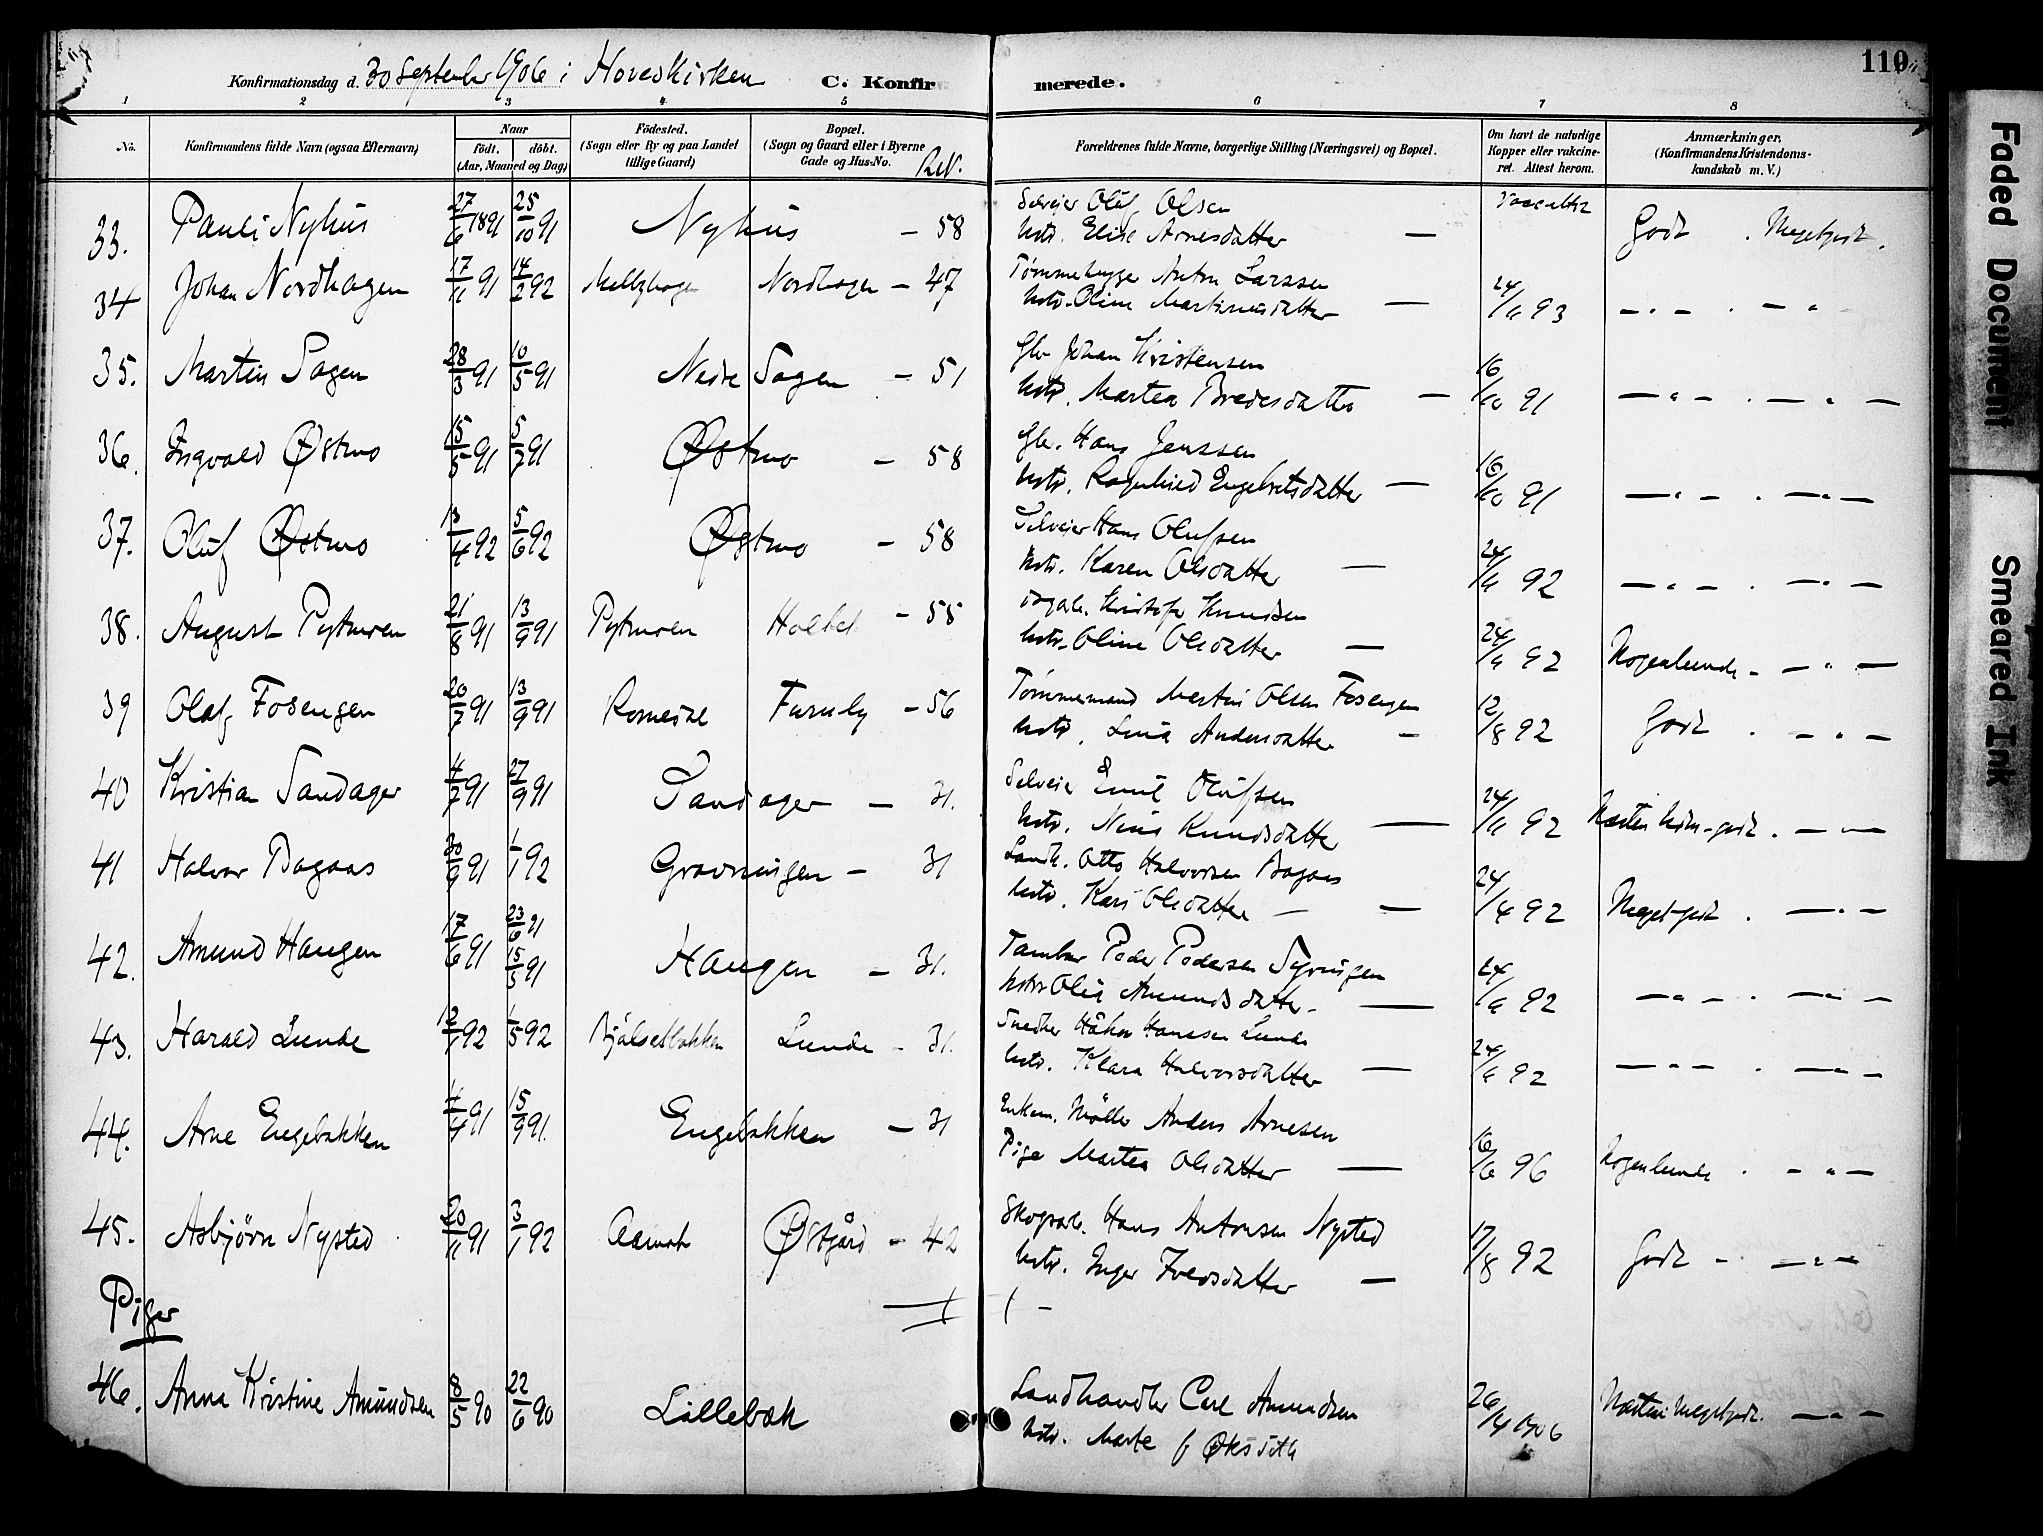 110
Konfirmationsdag d. 30 September 1906 i Hovedkirken C. Konfirmerede.
1 2 3 4 5 6 7 8
No. Konfirmandens fulde Navn (ogsaa Efternavn) Naar født. døbt. (Aar, Maaned og Dag) Fødested. (Sogn eller By og paa Landet tillige Gaard) Bopæl. (Sogn og Gaard eller i Byerne Gade og Hus-No. Forældrenes fulde Navne, borgerlige Stilling (Næringsvei) og Bopæl. Om havt de naturlige Kopper eller vakcineret. Attest herom. Anmærkninger. (Konfirmandens Kristendomskundskab m. V.)
33. Pauli Nyhus 27/6 1891 25/10 91 Nyhus - 58 Selveier Oluf Olsen
Hstr. Elise Arnesdatter — Godt . Megetgodt.
34 Johan Nordhagen 17/11 91 14/2 92 Nordhagen - 47 Tømmerhugger Anton Larssen
Hstr. Oline Martinusdatter — 24/6 93 — " — . — "
35. Martin Sagen 28/3 91 10/5 91 Nedre Sagen - 51 Gbr Johan Kristensen
Hstr. Martea Bredesdatter — 16/10 91 — " — . — " —
36. Ingvald Østmo 15/5 91 5/7 91 Østmo - 58 Gbr. Hans Jenssen
Hstr. Ragnhild Engebretsdatter — 16/10 91 — " — . — " —
37. Oluf Østmo 13/4 92 5/6 92 Østmo - 58 Selveier Hans Olufsen
Hstr. Karen Olsdatter — 24/6 92 — " — . — " —
38. August Pytmoen 21/8 91 13/9 91 Pytmoen Holtet - 55 Kristofer Knudsen
Hstr. Oline Olsdatter — 24/6 92 Nogenlunde - — " —
39 Olaf Fosengen 20/7 91 13/9 91 Romedal Furuly - 56 Tømmermand Martin Olsen Fosengen
Hstr. Lina Andersdatter - 12/8 92 Godt . — " —
40 Kristian Sandager 4/7 91 27/9 91 Sandager - 31. Selveier Emil Olufsen
Hstr. Nina Knudsdatter — 24/6 92 . — " —
41 Halvor Bagaas 30/9 91 1/1 92 Gravningen - 31 Landh. Otto Halvorsen Bagaas
Hstr. Kari Olsdatter — 24/4 92 Megetgodt . — " —
42. Amund Haugen 17/6 91 23/6 91
15/5 91 Haugen - 31. Peder Pedersen
Hstr Olia Amundsdatter — 24/6 92 — " — . — " —
43. Harald Lunde 12/1 92 1/5 92 Lunde - 31. Snedker Håkon Hanssen Lunde
Hstr. Klara Halvorsdatter — 24/6 92 — " — . — " —
44. Arne Engebakken 4/4 91 15/9 91. Engebakken - 31 Enkem. Møller Anders Arnesen
Pige Martea Olsdatter — 16/6 96 Nogenlunde . — " —
45. Asbjørn Nysted 20/11 91 3/1 92 Aamot Østgård - 42 Skogsarb. Hans Antonsen Nysted
Hstr. Inger Iversdatter — 17/8 92 Godt - — " —
Piger
46. Anna Kristine Amundsen 8/5 90 22/6 90 Lillebæk Landhandler Carl Amundsen
Hstr. Marte f 26/4 1906 Næsten megetgodt. — " —
Faded Document
Smeared Ink